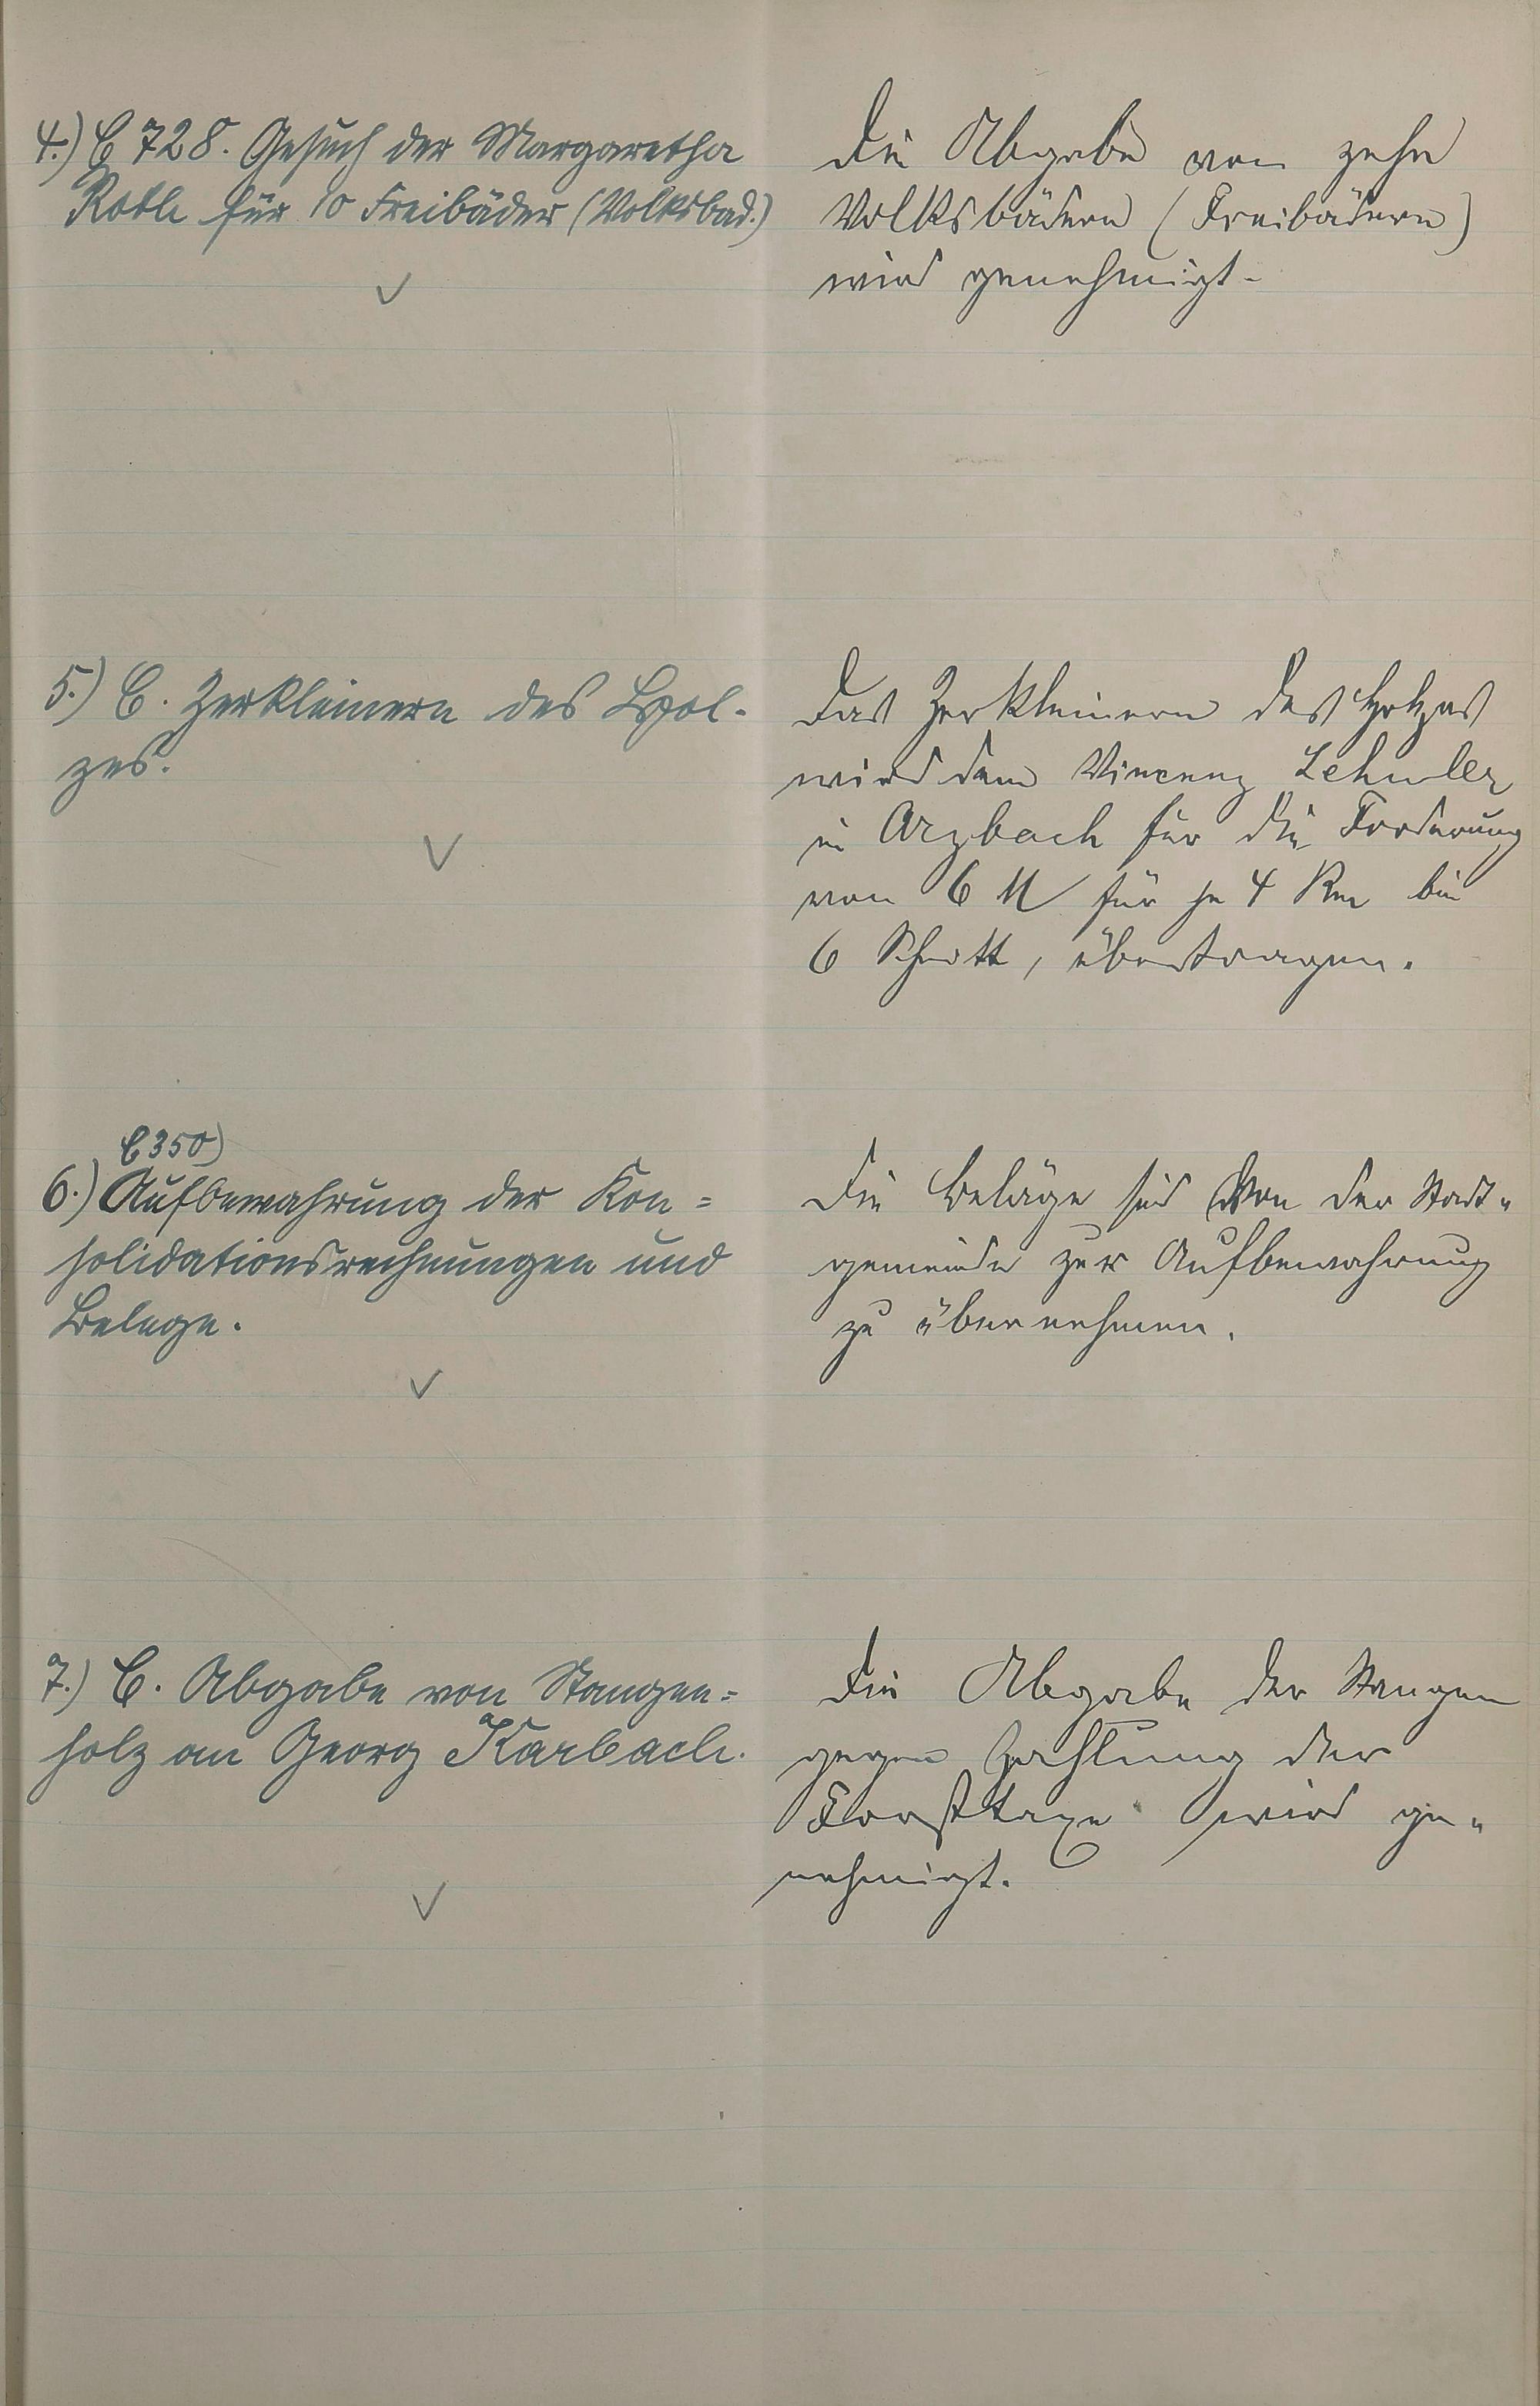 4.) C 728. Gesuch der Margaretha
Roth für 10 Freibäder (Volksbad.)
Die Abgabe von zehn
Volksbädern (Freibädern)
wird genehmigt.
5.) C. Zerkleinern des Hol-
zes.
Das Zerkleinern des Holzes
wird dem Vincenz Lehmler
in Arzbach für die Forderung
von 6 M für je 4 Rm bei
6 Schnitt, übertragen.
C 350)
6.) Aufbewahrung der Kon=
solidationsrechnungen und
Belege.
Die Beläge sind von der Stadt=
gemeinde zur Aufbewahrung
zu übernehmen.
7.) C. Abgabe von Stangen=
holz an Georg Karbach.
Die Abgabe der Stangen
gegen Zahlung der
Forsttaxe wird ge=
nehmigt.